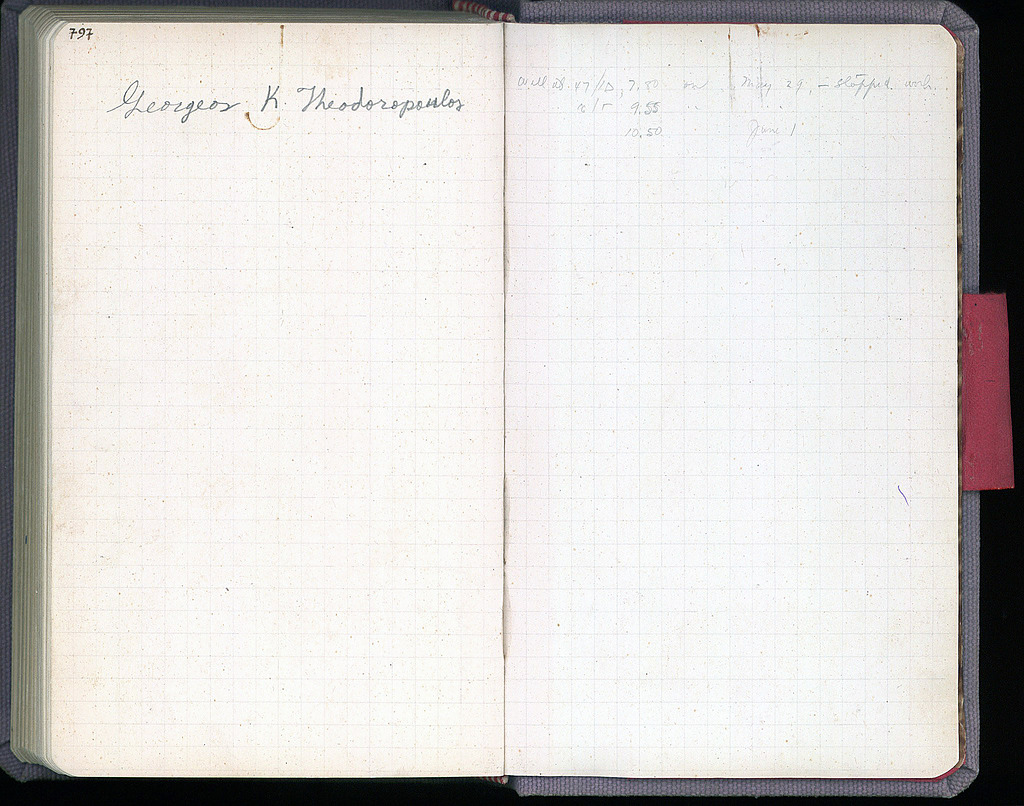 797
Georgeos K. Theodoropoulos
Well at 47/ΙΔ, 7.80 on May 29, – stopped work.
9.55 " "
10.50 " June 1